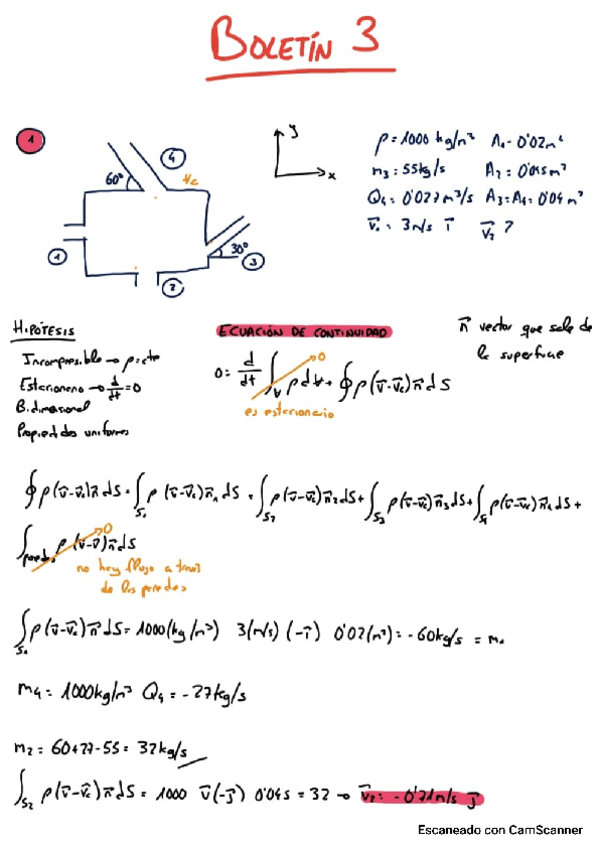 BOLETÍN 3
1
60º
4
Vc
y
x
1
2
30º
3
ρ = 1000 kg/m³ A₁ = 0'02 m²
m₃ = 55 kg/s A₂ = 0'045 m²
Q₄ = 0'027 m³/s A₃ = A₄ = 0'04 m²
v⃗₁ = 3 m/s i⃗ v⃗₂ ?
HIPÓTESIS
Incompresible → ρ = cte
Estacionario → d/dt = 0
Bidimensional
Propiedades uniformes
ECUACIÓN DE CONTINUIDAD
0 = d/dt ∫_V ρ dV + ∮ ρ (v⃗ - v⃗c) n⃗ dS
0
es estacionario
n⃗ vector que sale de
la superficie
∮ ρ (v⃗ - v⃗c) n⃗ dS = ∫_S₁ ρ (v⃗ - v⃗c) n⃗₁ dS = ∫_S₂ ρ (v⃗ - v⃗c) n⃗₂ dS + ∫_S₃ ρ (v⃗ - v⃗c) n⃗₃ dS + ∫_S₄ ρ (v⃗ - v⃗c) n⃗₄ dS +
∫_paredes ρ (v⃗ - v⃗) n⃗ dS 0
no hay flujo a traves
de las paredes
∫_S₁ ρ (v⃗ - v⃗c) n⃗ dS = 1000 (kg/m³) 3 (m/s) (-i⃗) 0'02 (m²) = -60 kg/s = m₁
m₄ = 1000 kg/m³ Q₄ = -27 kg/s
m₂ = 60 + 27 - 55 = 32 kg/s
∫_S₂ ρ (v⃗ - v⃗c) n⃗ dS = 1000 v⃗ (-j⃗) 0'045 = 32 → v⃗₂ = -0'71 m/s j⃗
Escaneado con CamScanner